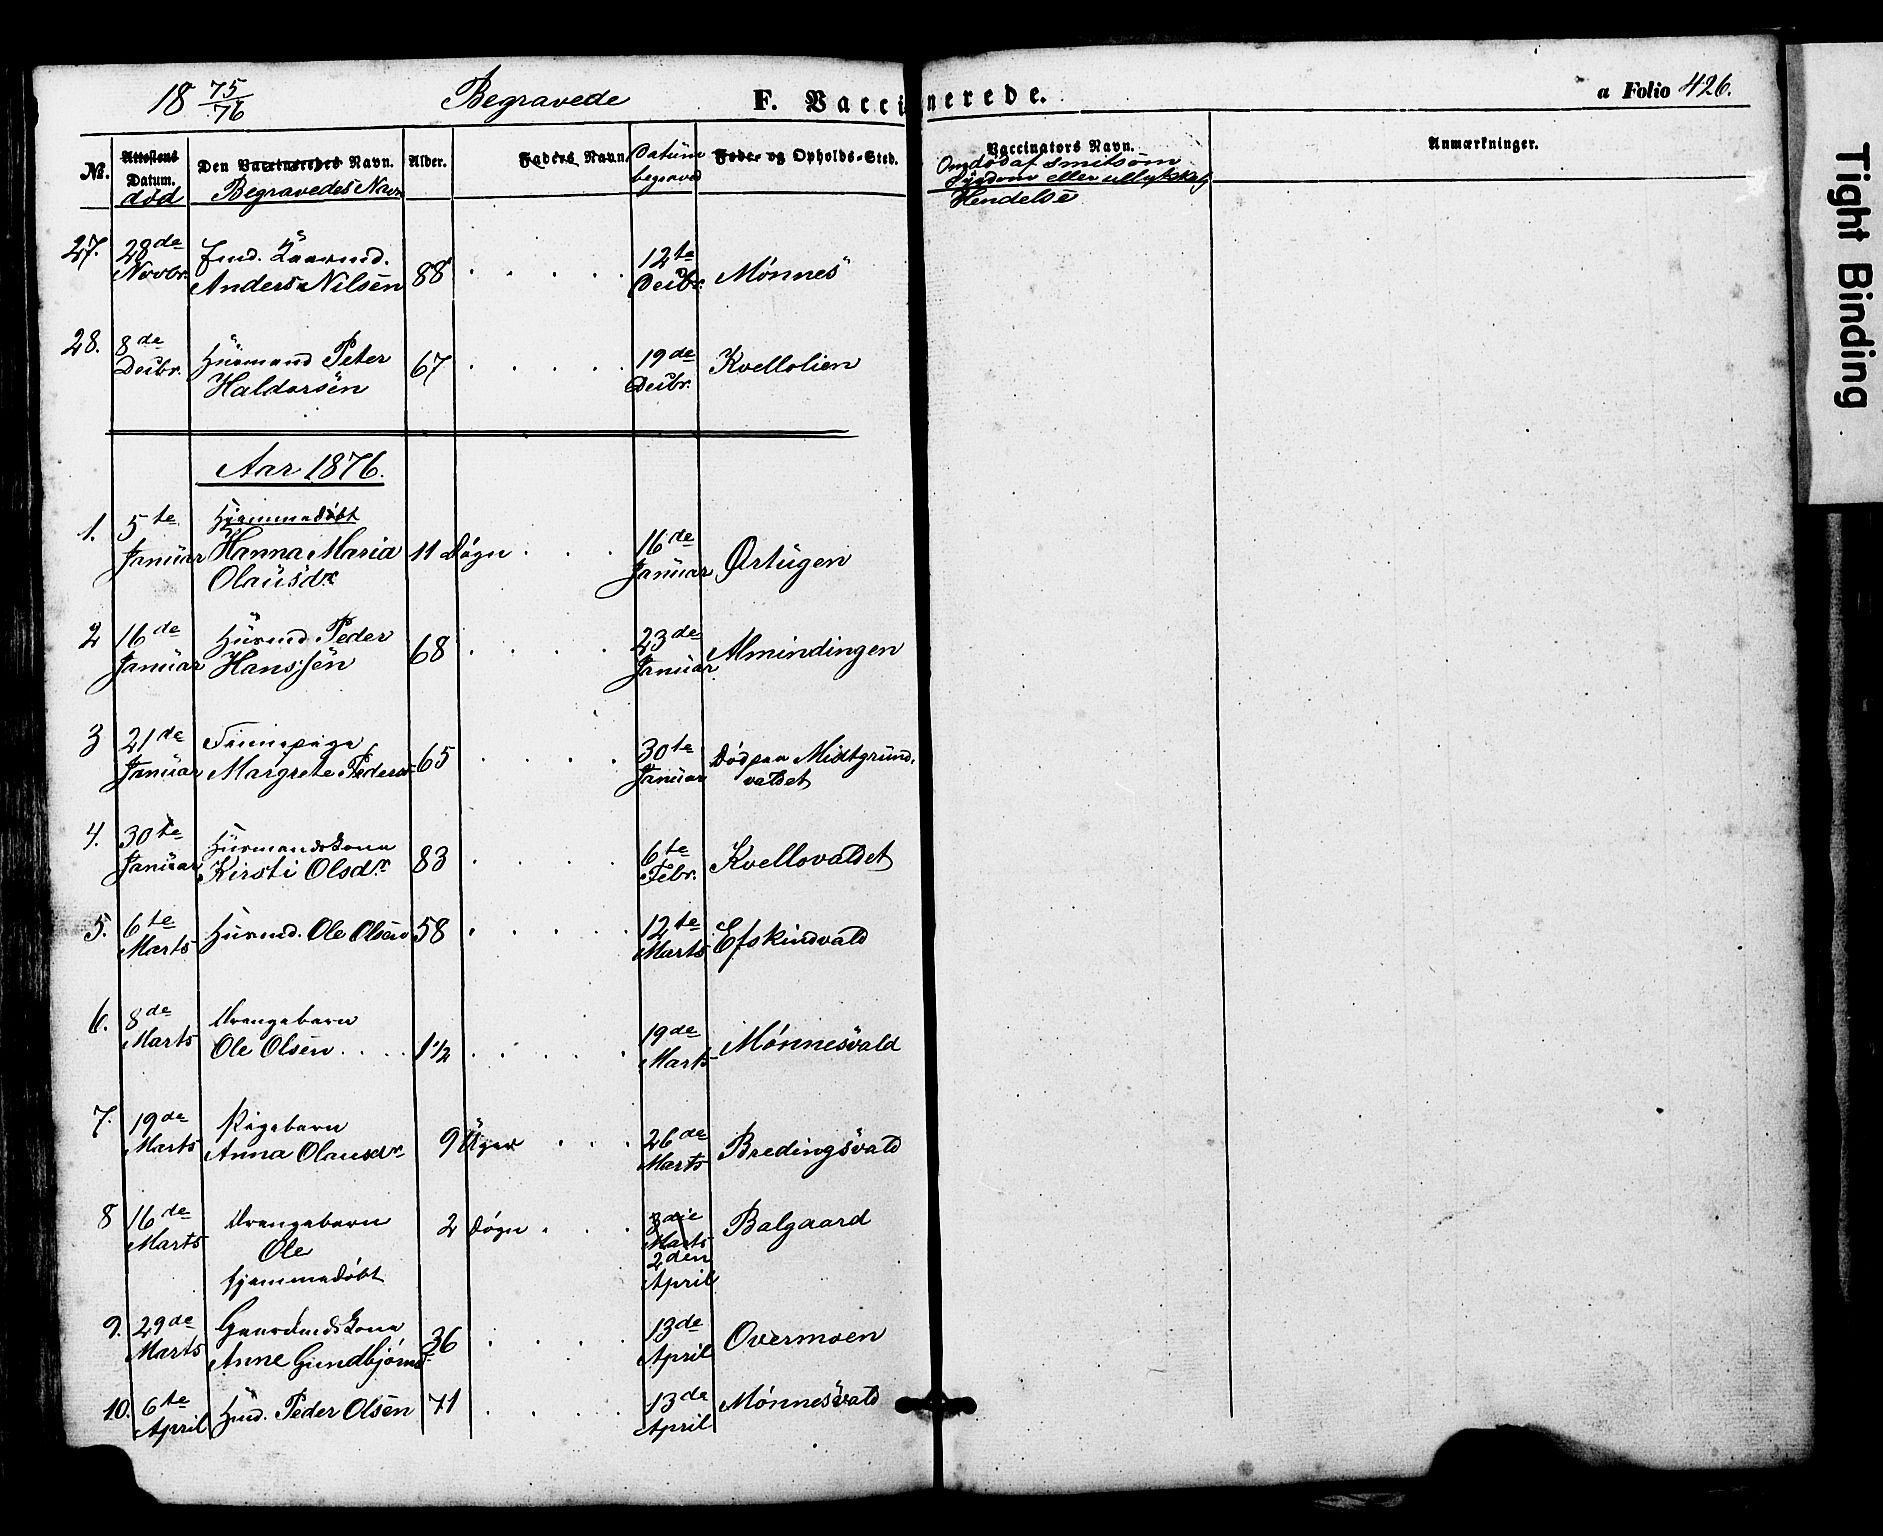 18 75/76 Begravede F. Vaccinerede. a Folio 426.
No. Attestens Datum. død
Den Vaccineredes Navn. Begravedes Navn
Alder.
Faders Navn.
Datum begraved
Føde- og Opholds-Sted.
Vaccinators Navn.
Om død af smitsom
Sygdom eller ullykkelig
Hendelse
Anmærkninger.
27. 28de Novbr. Anders Nilsen 88 12te Decbr. Mønnes
28. 8de Decbr. Huusmand Peter
Haldorsen 67 19de Decbr. Kvellolien
Aar 1876.
1. 5te Januar Hjemmedøbt
Hanna Maria
Olausdr. 11 Døgn 16de Januar Ørtugen
2 16de Januar Huusmd. Peder
Hanssen 68 23de Januar Almindingen
3 21de Januar Finnepige
Margrete Pedersd. 65 30te Januar Død paa Midtgrund-
valdet
4. 30te Januar Huusmandskona
Kirsti Olsdr. 83 6te Febr. Kvellovaldet
5. 6te Marts Huusmd. Ole Olsen 58 12te Marts Efskindvald
6. 8de Marts Drengebarn
Ole Olsen 1 1/2 19de Marts Mønnesvald
7. 19de Marts Pigebarn
Anna Olausdr. 9 Uger 26de Marts Bredingsvald
8 16de Marts Drengebarn
Ole
hjemmedøbt 2 Døgn Marts
2den April Balgaard
9. 29de Marts Gaardmdskona
Anne Gundbjørnsd. 36 13de April Overmoen
10. 6te April Hmd. Peder Olsen 71 13de April Mønnesvald
Tight Binding